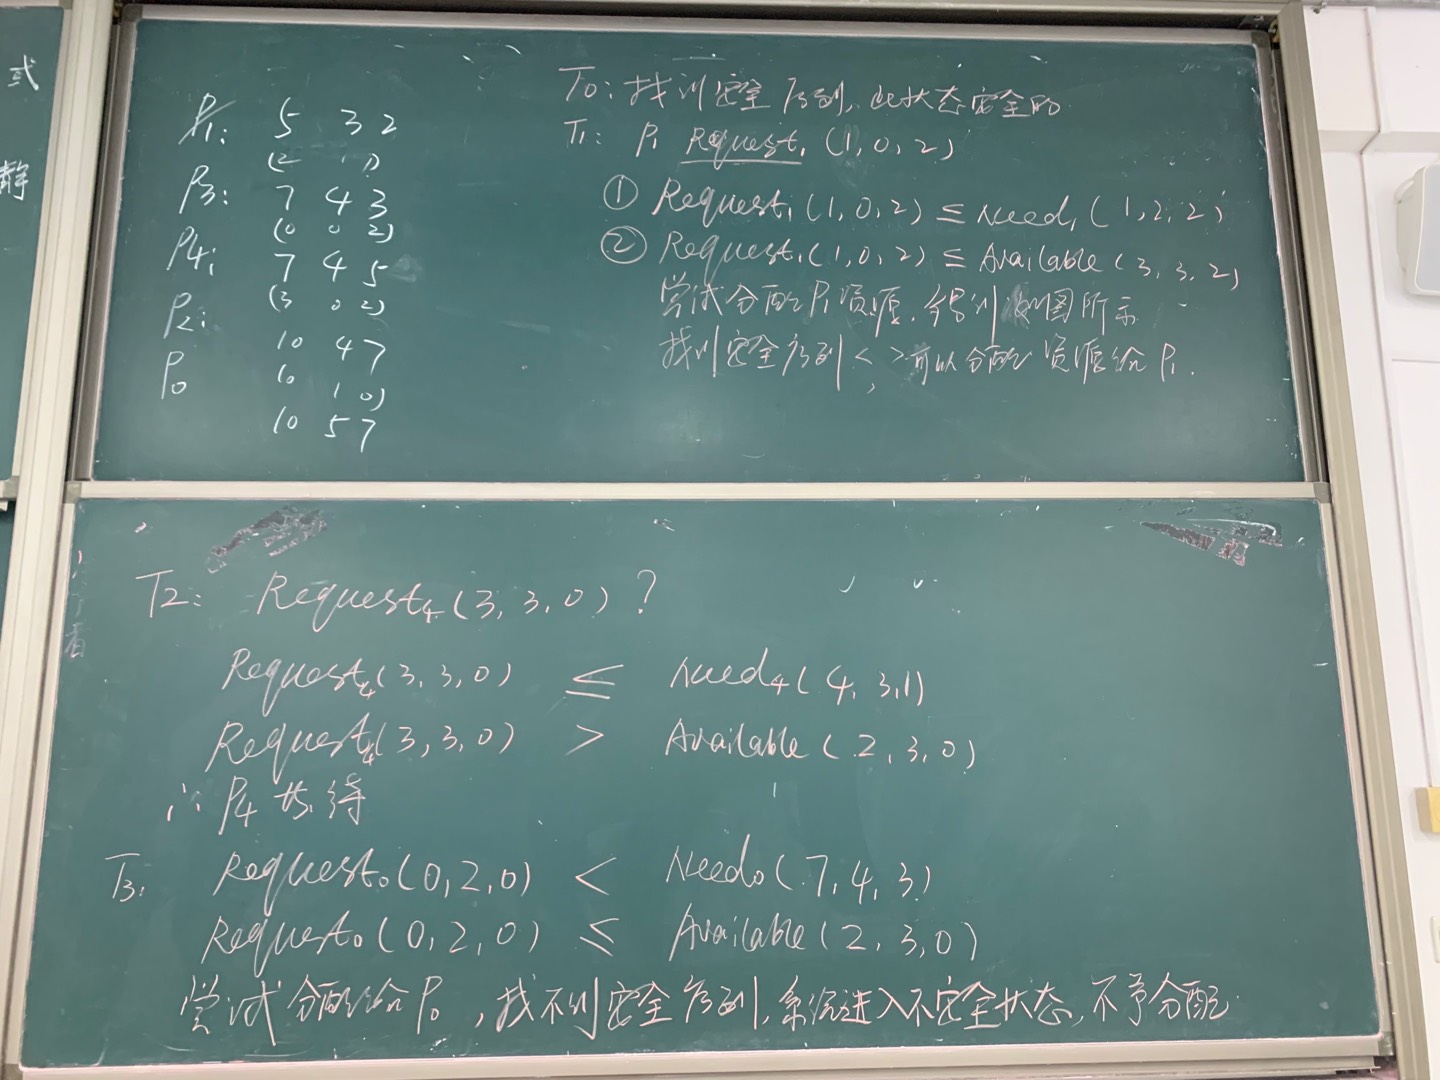 式
静
P1: 5 3 2
(2 1 1)
P3: 7 4 3
(0 0 2)
P4: 7 4 5
(3 0 2)
P2: 10 4 7
(0 1 0)
P0 10 5 7
T0: 找到安全序列, 此状态安全的
T1: P1 Request1 (1, 0, 2)
① Request1 (1, 0, 2) ≤ Need1 (1, 2, 2)
② Request1 (1, 0, 2) ≤ Available (3, 3, 2)
尝试分配P1资源, 得到 图所示
找到安全序列< , >可以分配资源给P1.
T2: Request4 (3, 3, 0) ?
Request4 (3, 3, 0) ≤ Need4 (4, 3, 1)
Request4 (3, 3, 0) > Available (2, 3, 0)
∴ P4 等待
T3: Request0 (0, 2, 0) < Need0 (7, 4, 3)
Request0 (0, 2, 0) ≤ Available (2, 3, 0)
尝试分配给P0, 找不到安全序列, 系统进入不安全状态, 不予分配